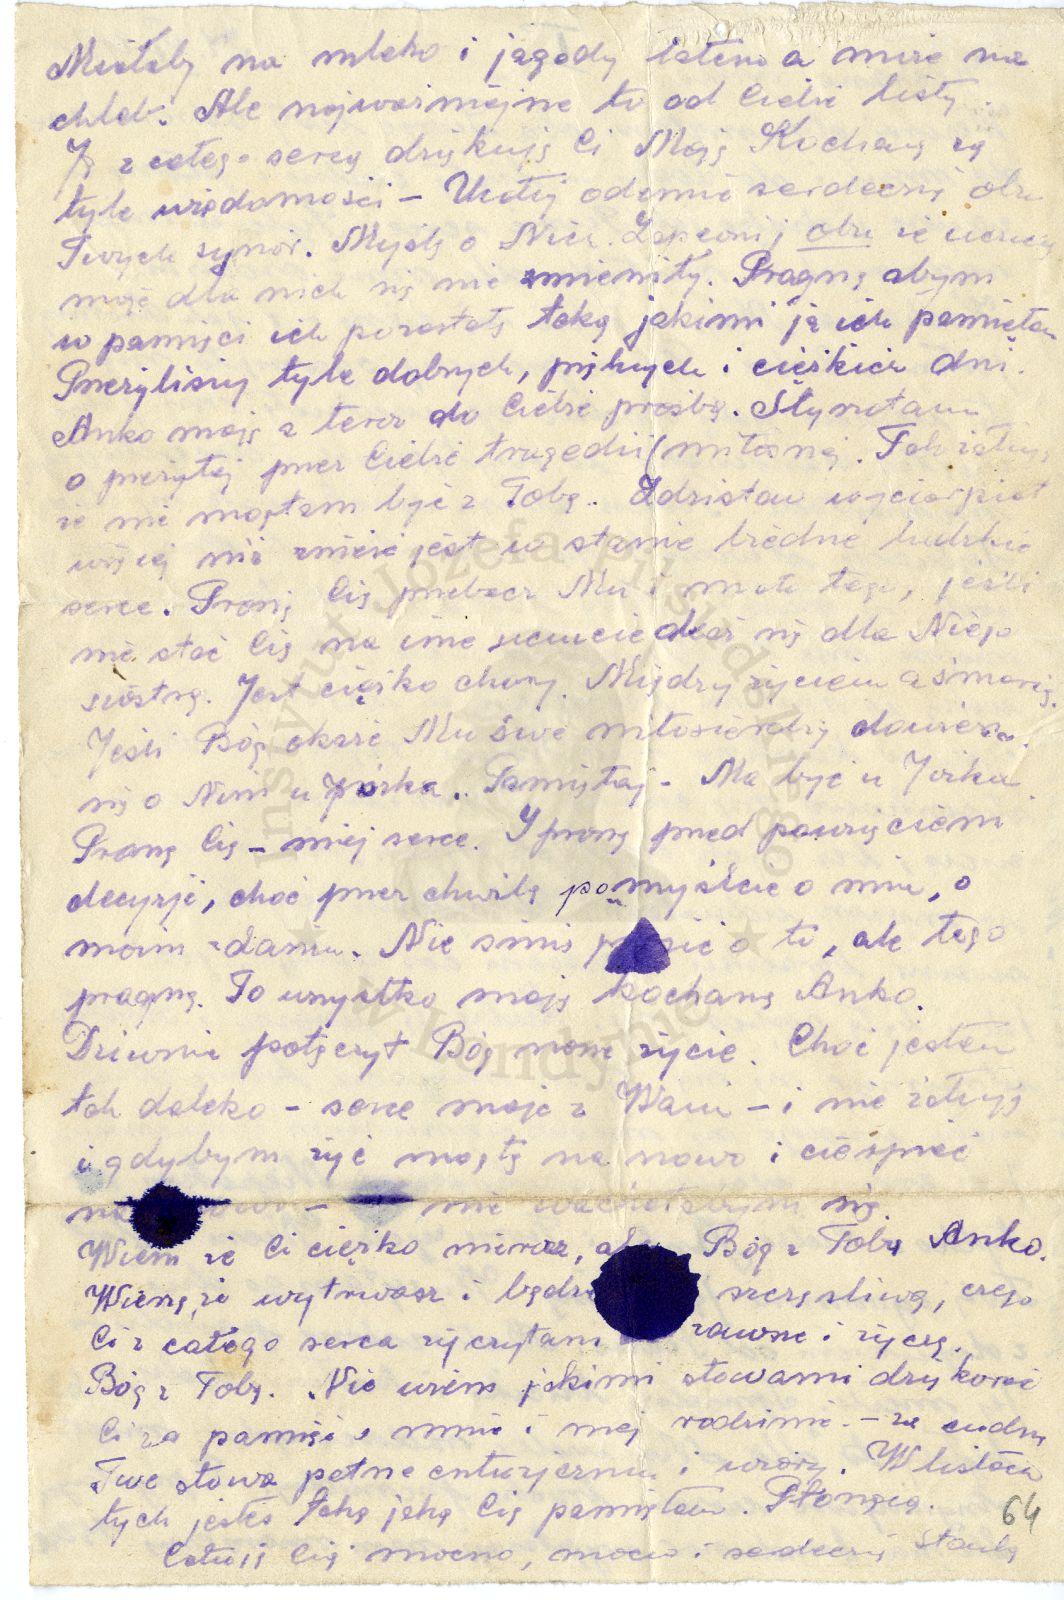 Miałaby na mleko i jagody latem a może na
chleb. Ale najważniejsze to od Ciebie listy.
Z całego serca dziękuję Ci Moja Kochana za
tyle wiadomości – Ucałuj odemnie serdecznie obu
Twych synów. Myślę o Nich. Zapewnij obu że uczucia
moje dla nich się nie zmieniły. Pragnę abym
w pamięci ich pozostała taką jakimi ja ich pamiętam
Przeżyliśmy tyle dobrych, pięknych i ciężkich dni.
Anko moja a teraz do Ciebie prośba. Słyszałam
o przeżytej przez Ciebie tragedii (miłosnej. Tak żałuję
że nie mogłam być z Tobą. Zdzisław wycierpiał
więcej niż znieść jest w stanie biedne ludzkie
serce. Proszę Cię przebacz Mu i mimo tego, jeśli
nie stać Cię na inne uczucie bądź dla Niego
siostrą. Jest ciężko chory. Między życiem a śmiercią.
Jeśli Bóg okaże Mu swe miłosierdzie dowiesz
się o Nim u Jurka. Pamiętaj – Ma być u Jurka.
Proszę Cię – miej serce. I proszę przed powzięciem
decyzji, choć przez chwilę pomyślcie o mnie, o
moim zdaniu. Nie śmię o to, ale tego
pragnę. To wszystko moja kochana Anko.
Dziwnie połączył Bóg nasze życie. Choć jestem
tak daleko – serce moje z Wami – i nie żałuję
i gdybym żyć mogła na nowo i cierpieć
na – nie wachałabym się.
Wiem że Ci ciężko nieraz, ale Bóg z Tobą Anko.
Wierzę, że wytrwasz i szczęśliwą, czego
Ci z całego serca życzyłam zawsze i życzę.
Bóg z Tobą. Nie wiem jakimi słowami dziękować
Ci za pamięć o mnie i mej rodzinie. – za cudne
Twe słowa pełne entuzjazmu i wiary. W listach
tych jesteś taką jaką Cię pamiętam. Płonącą.
Całuję Cię mocno, mocno i serdecznie
64
Instytut Józefa Piłsudskiego w Londynie